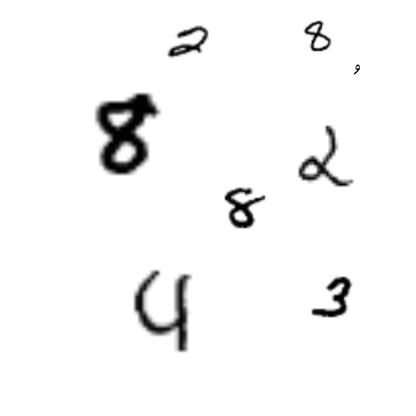 2 8
9
8
2
8
4 3